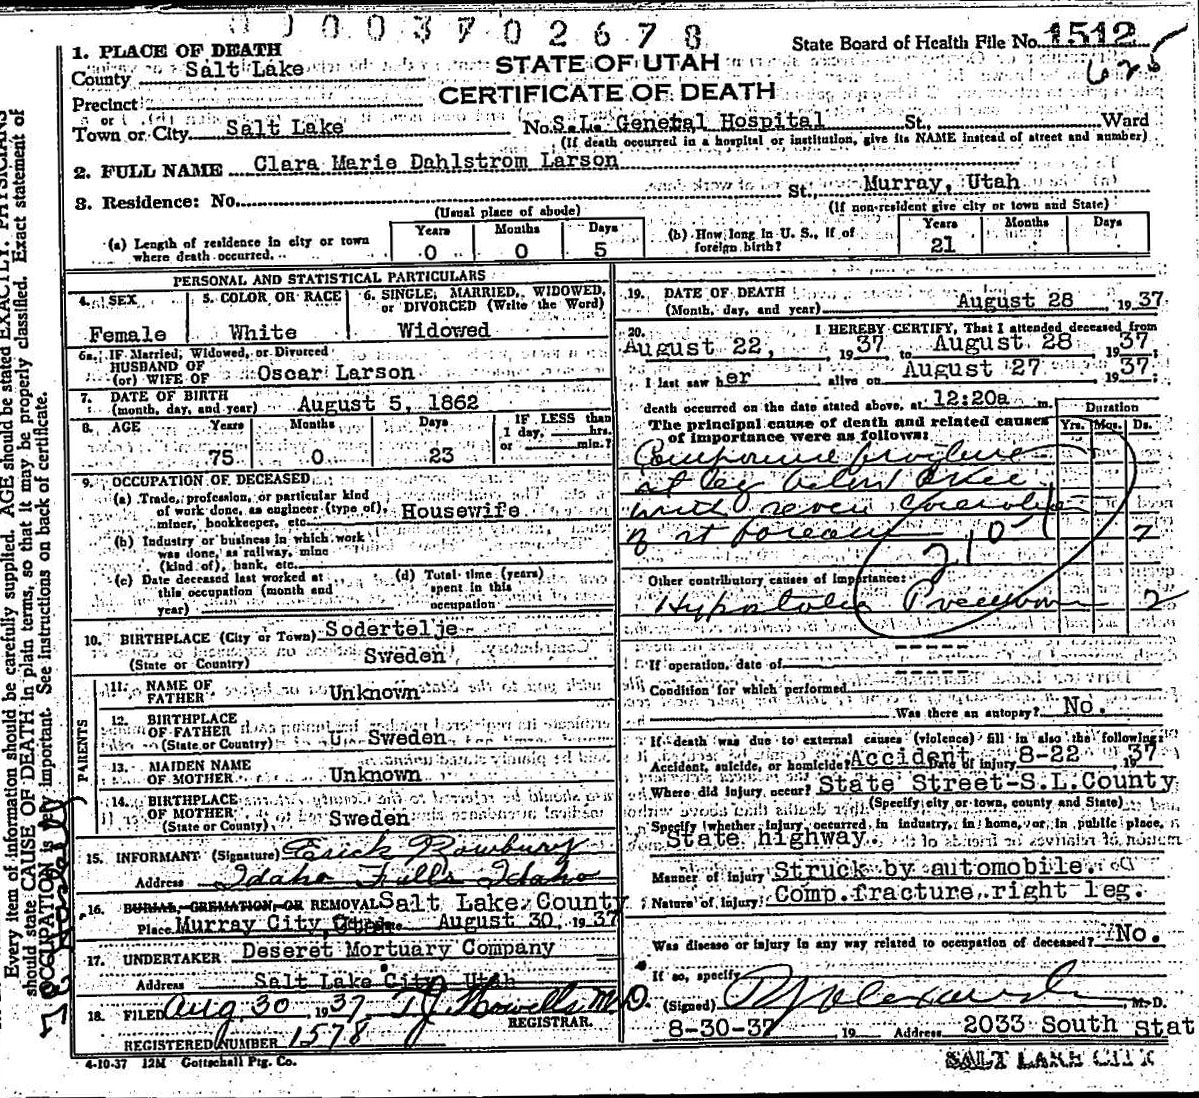 0003702678
State Board of Health File No. 1512
625
STATE OF UTAH
CERTIFICATE OF DEATH
1. PLACE OF DEATH
County Salt Lake
Precinct
or
Town or City Salt Lake No. S.L. General Hospital St., Ward
(If death occurred in a hospital or institution, give its NAME instead of street and number)
2. FULL NAME Clara Marie Dahlstrom Larson
3. Residence: No. St., Murray, Utah
(Usual place of abode) (If non-resident give city or town and State)
(a) Length of residence in city or town where death occurred. Years 0 Months 0 Days 5
(b) How long in U. S., if of foreign birth? Years 21 Months Days
PERSONAL AND STATISTICAL PARTICULARS
4. SEX Female
5. COLOR OR RACE White
6. SINGLE, MARRIED, WIDOWED, or DIVORCED (Write the Word) Widowed
6a. IF Married, Widowed, or Divorced
HUSBAND OF
(or) WIFE OF Oscar Larson
7. DATE OF BIRTH
(month, day, and year) August 5, 1862
8. AGE Years 75 Months 0 Days 23 IF LESS than 1 day, hrs. or min.?
9. OCCUPATION OF DECEASED
(a) Trade, profession, or particular kind of work done, as engineer (type of), miner, bookkeeper, etc. Housewife
(b) Industry or business in which work was done, as railway, mine (kind of), bank, etc.
(c) Date deceased last worked at this occupation (month and year)
(d) Total time (years) spent in this occupation
10. BIRTHPLACE (City or Town) Sodertelje
(State or Country) Sweden
PARENTS
11. NAME OF FATHER Unknown
12. BIRTHPLACE OF FATHER
(State or Country) U Sweden
13. MAIDEN NAME OF MOTHER Unknown
14. BIRTHPLACE OF MOTHER
(State or Country) Sweden
15. INFORMANT (Signature) Erick Rowbury
Address Idaho Falls Idaho
16. BURIAL, CREMATION, OR REMOVAL Salt Lake County
Place Murray City, August 30, 1937
17. UNDERTAKER Deseret Mortuary Company
Address Salt Lake City, Utah
18. FILED Aug 30 1937 T J Howells M.D.
REGISTRAR.
REGISTERED NUMBER 1578
4-10-37 12M Gottschall Ptg. Co.
19. DATE OF DEATH
(Month, day, and year) August 28, 1937
20. I HEREBY CERTIFY, That I attended deceased from
August 22, 1937 to August 28 1937;
I last saw her alive on August 27 1937;
death occurred on the date stated above, at 12:20a m.
The principal cause of death and related causes of importance were as follows:
Duration
Yrs. Mos. Ds.
Compound fracture
rt leg below knee
with
of rt 7
210
Other contributory causes of importance:
Hypostatic Pneumonia 2
If operation, date of
Condition for which performed
Was there an autopsy? No.
If death was due to external causes (violence) fill in also the following:
Accident, suicide, or homicide? Accident Date of injury 8-22 1937
Where did injury occur? State Street-S.L.County
(Specify city or town, county and State)
Specify whether injury occurred in industry, in home, or in public place.
State highway.
Manner of injury Struck by automobile.
Nature of injury Comp.fracture right leg.
Was disease or injury in any way related to occupation of deceased? No.
If so, specify
(Signed) M.D.
8-30-37 19 Address 2033 South Stat
SALT LAKE CITY
Every item of information should be carefully supplied. AGE should be stated EXACTLY. PHYSICIANS
should state CAUSE OF DEATH in plain terms, so that it may be properly classified. Exact statement of
OCCUPATION is very important. See instructions on back of certificate.